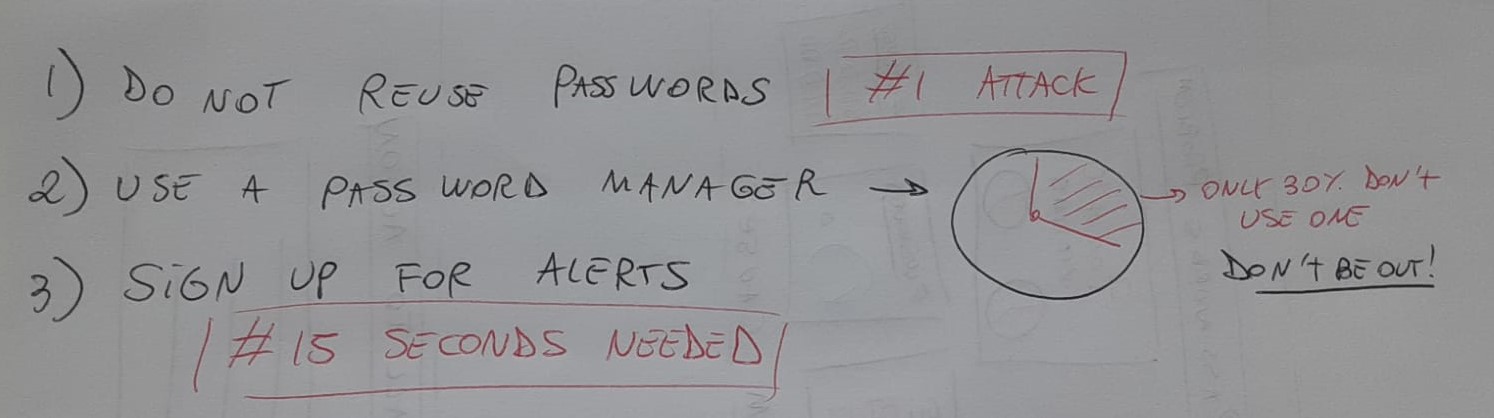 1) DO NOT REUSE PASSWORDS #1 ATTACK
2) USE A PASSWORD MANAGER → → ONLY 30% DON'T
USE ONE
DON'T BE OUT!
3) SIGN UP FOR ALERTS
#15 SECONDS NEEDED